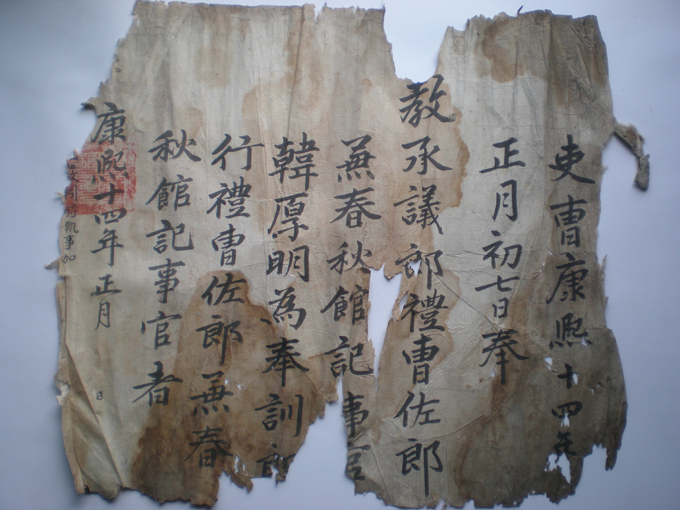 吏曹康熙十四年
正月初七日奉
教承議郎禮曹佐郎
兼春秋館記事官
韓厚明為奉訓郎
行禮曹佐郎兼春
秋館記事官者
康熙十四年正月 日